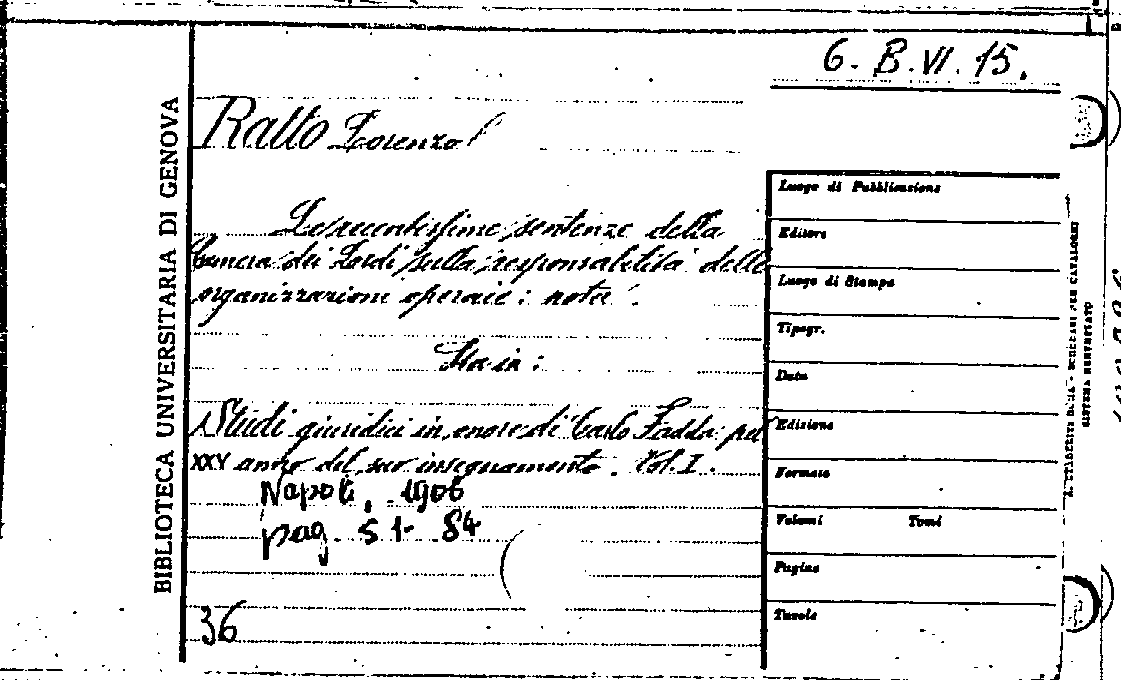 6. B. VI. 15.
Ratto Lorenzo
Le recentissime sentenze della
Camera dei Lordi sulla responsabilità delle
organizzazioni operaie: note.
Sta in:
Studi giuridici in onore di Carlo Fadda pel
XXV anno del suo insegnamento. Vol. I.
Napoli, 1906
pag. 51-84
36
BIBLIOTECA UNIVERSITARIA DI GENOVA
Luogo di Pubblicazione
Editore
Luogo di Stampa
Tipogr.
Data
Edizione
Formato
Volumi Tomi
Pagine
Tavole
SISTEMA BREVETTATO